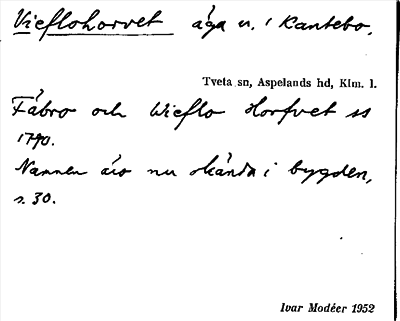 Vieflohorvet äga u. i Kantebo.
Tveta sn, Aspelands hd, Klm. l.
Fåbro och Wieflo Horfvet ss
1790.
Namnen äro nu okända i bygden,
s. 30.
Ivar Modéer 1952